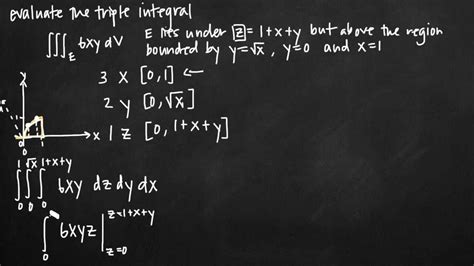 evaluate the triple integral
∭_E 6xy dV
E lies under z = 1+x+y but above the region
bounded by y=√x, y=0 and x=1
3 X [0,1] ←
2 y [0,√x]
1 z [0, 1+x+y]
y
x
0
1
∫_0^1 ∫_0^√x ∫_0^{1+x+y} 6xy dz dy dx
∫_0 6xyz |_{z=0}^{z=1+x+y}